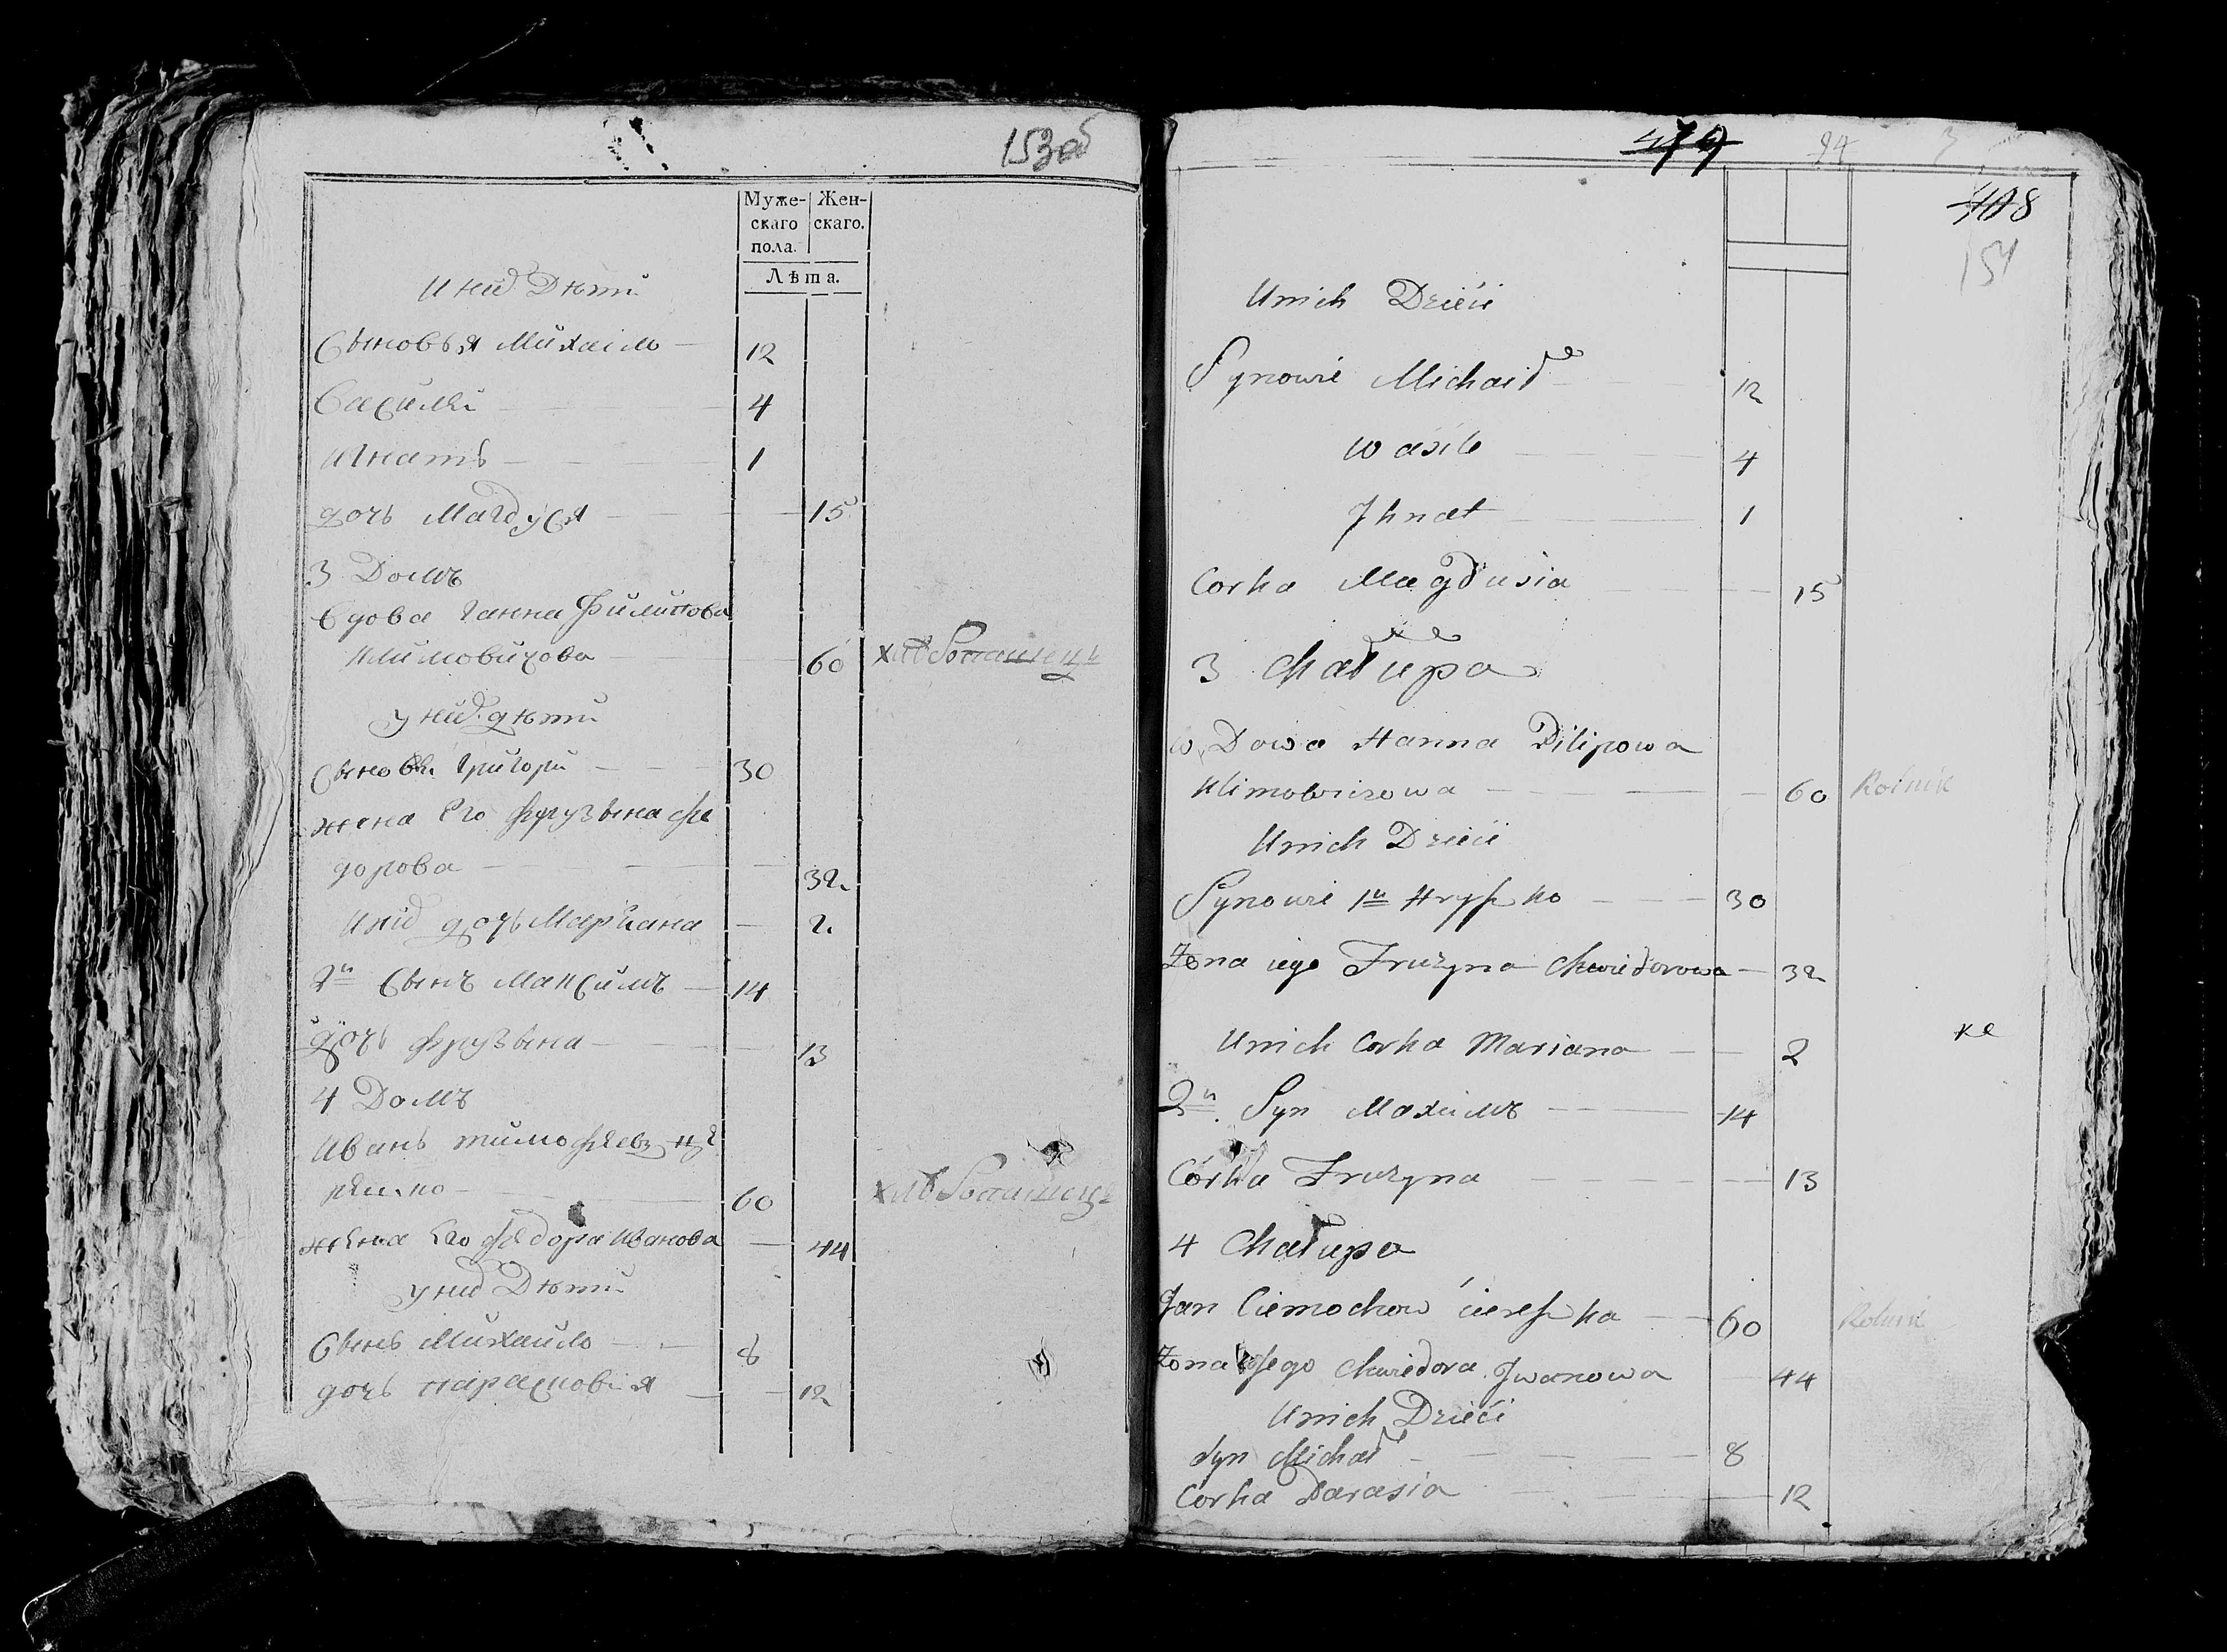 153об
Муже-
скаго
пола.
Жен-
скаго.
Лѣта.
У нид Дѣти
Сыновья Михаило — 12
Василы — 4
Игнатъ — 1
дочь Магдуся — 15
3 Домъ
Вдова Ганна Филипова
Климовичова — 60 хлѣбопашецъ
у нид дѣти
Григори — 30
жена Его Фрузына Фе
дорова — 32
У нid дочь Маріана — 2
2й Сынъ Максимъ — 14
дочь Фрузына — 13
4 Домъ
Иванъ
60 хлѣбопашецъ
жена Его Федора Иванова — 44
у нид Дѣти
Сынъ Михаило — 8
дочь Парасковія — 12
479
94
3
408
154
Unich Dzieći
Synowie Michaił — 12
Wasil — 4
Jhnat — 1
Corka Magdusia — 15
3 Chałupa
wDowa Hanna Pilipowa
Klimowiczowa — 60 Rolnik
Unich Dzieći
Synowie 1й Hryszko — 30
Żona iego Fruzyna Chwiedorowa — 32
Unich Corka Mariana — 2
2й Syn Maximъ — 14
Córka Fruzyna — 13
4 Chałupa
Jan Ciemochow ciereszka — 60 Rolnik
Żona Jego Chwiedora Jwanowa 44
Unich Dzieći
Syn Michał — 8
Corka Parasia — 12